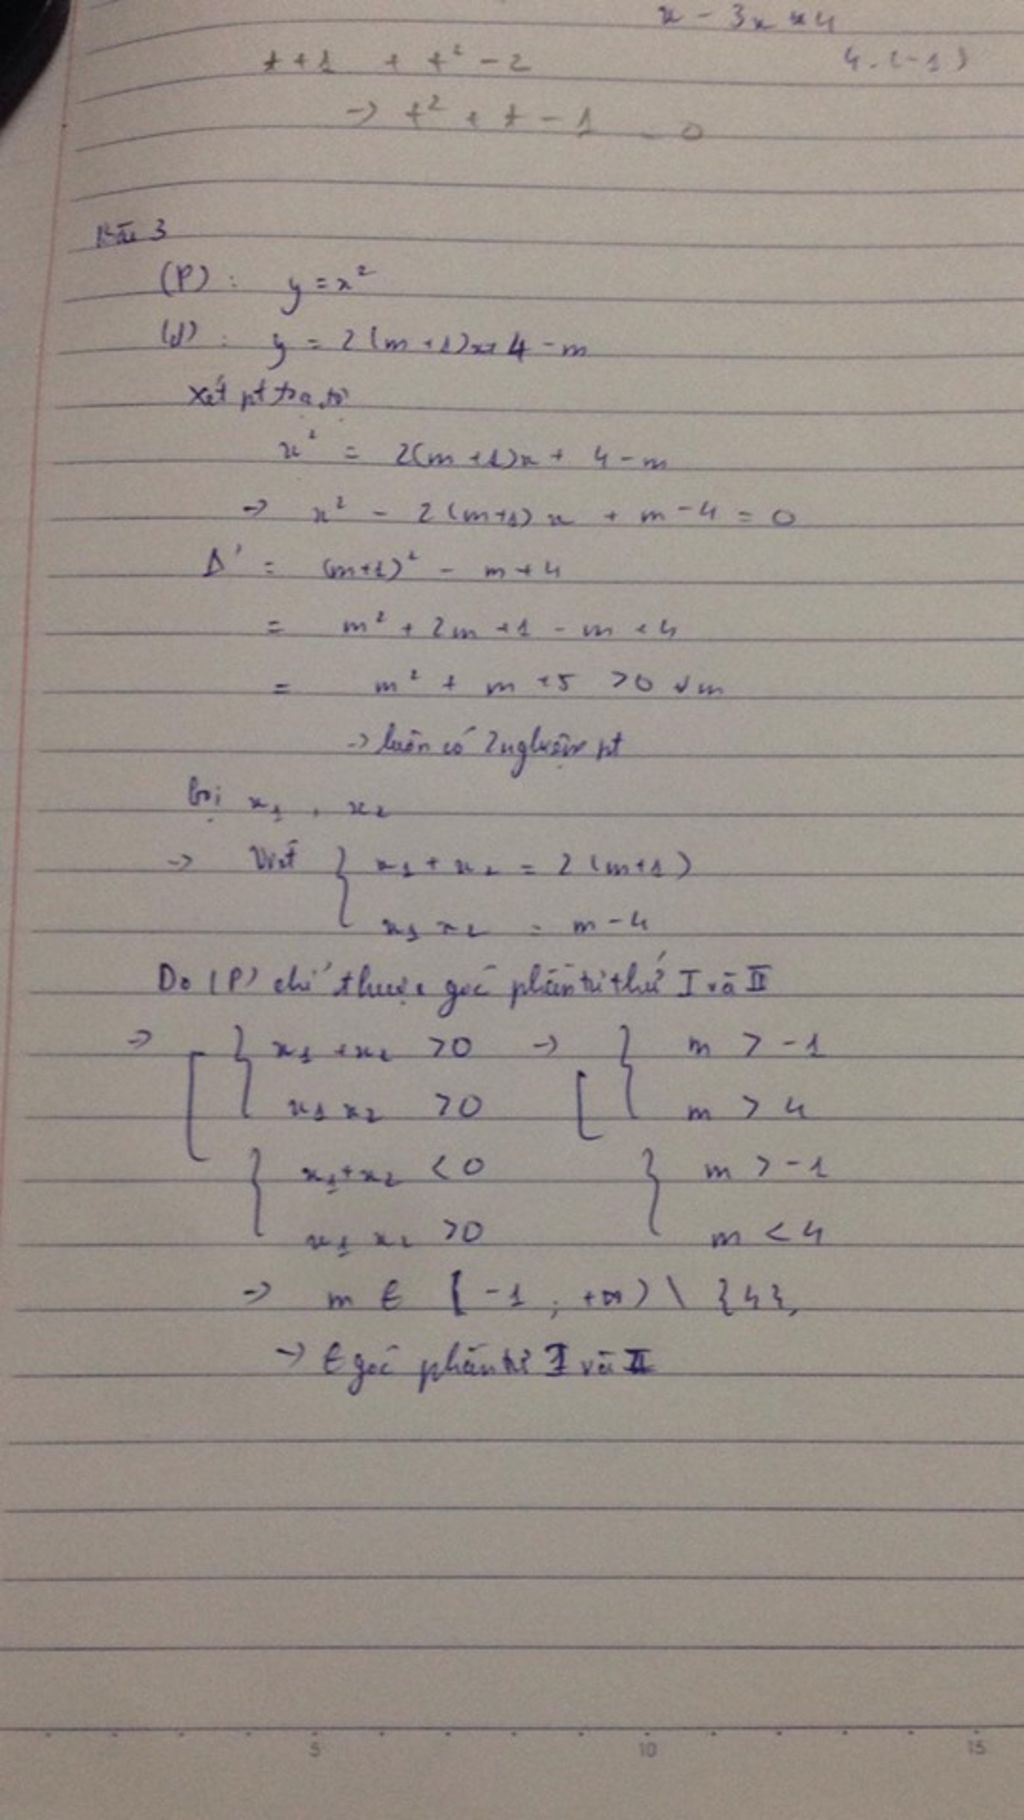 x - 3x + 4
t + 1 + t² - 2
4.(-1)
→ t² + t - 1 = 0
Bài 3
(P): y = x²
(d): y = 2(m+1)x + 4 - m
Xét pt
x² = 2(m+1)x + 4 - m
→ x² - 2(m+1)x + m - 4 = 0
Δ' = (m+1)² - m + 4
= m² + 2m + 1 - m + 4
= m² + m + 5 > 0 ∀m
→ luôn có 2 nghiệm pt
Gọi x₁, x₂
→ Viét { x₁ + x₂ = 2(m+1)
x₁ x₂ = m - 4
Do (P) chỉ thuộc góc phần tư thứ I và II
→ [ { x₁ + x₂ > 0 → [ { m > -1
x₁ x₂ > 0 m > 4
{ x₁ + x₂ < 0 { m > -1
x₁ x₂ > 0 m < 4
→ m ∈ [-1; +∞) \ {4}
→ ∈ góc phần tư I và II
5 10 15